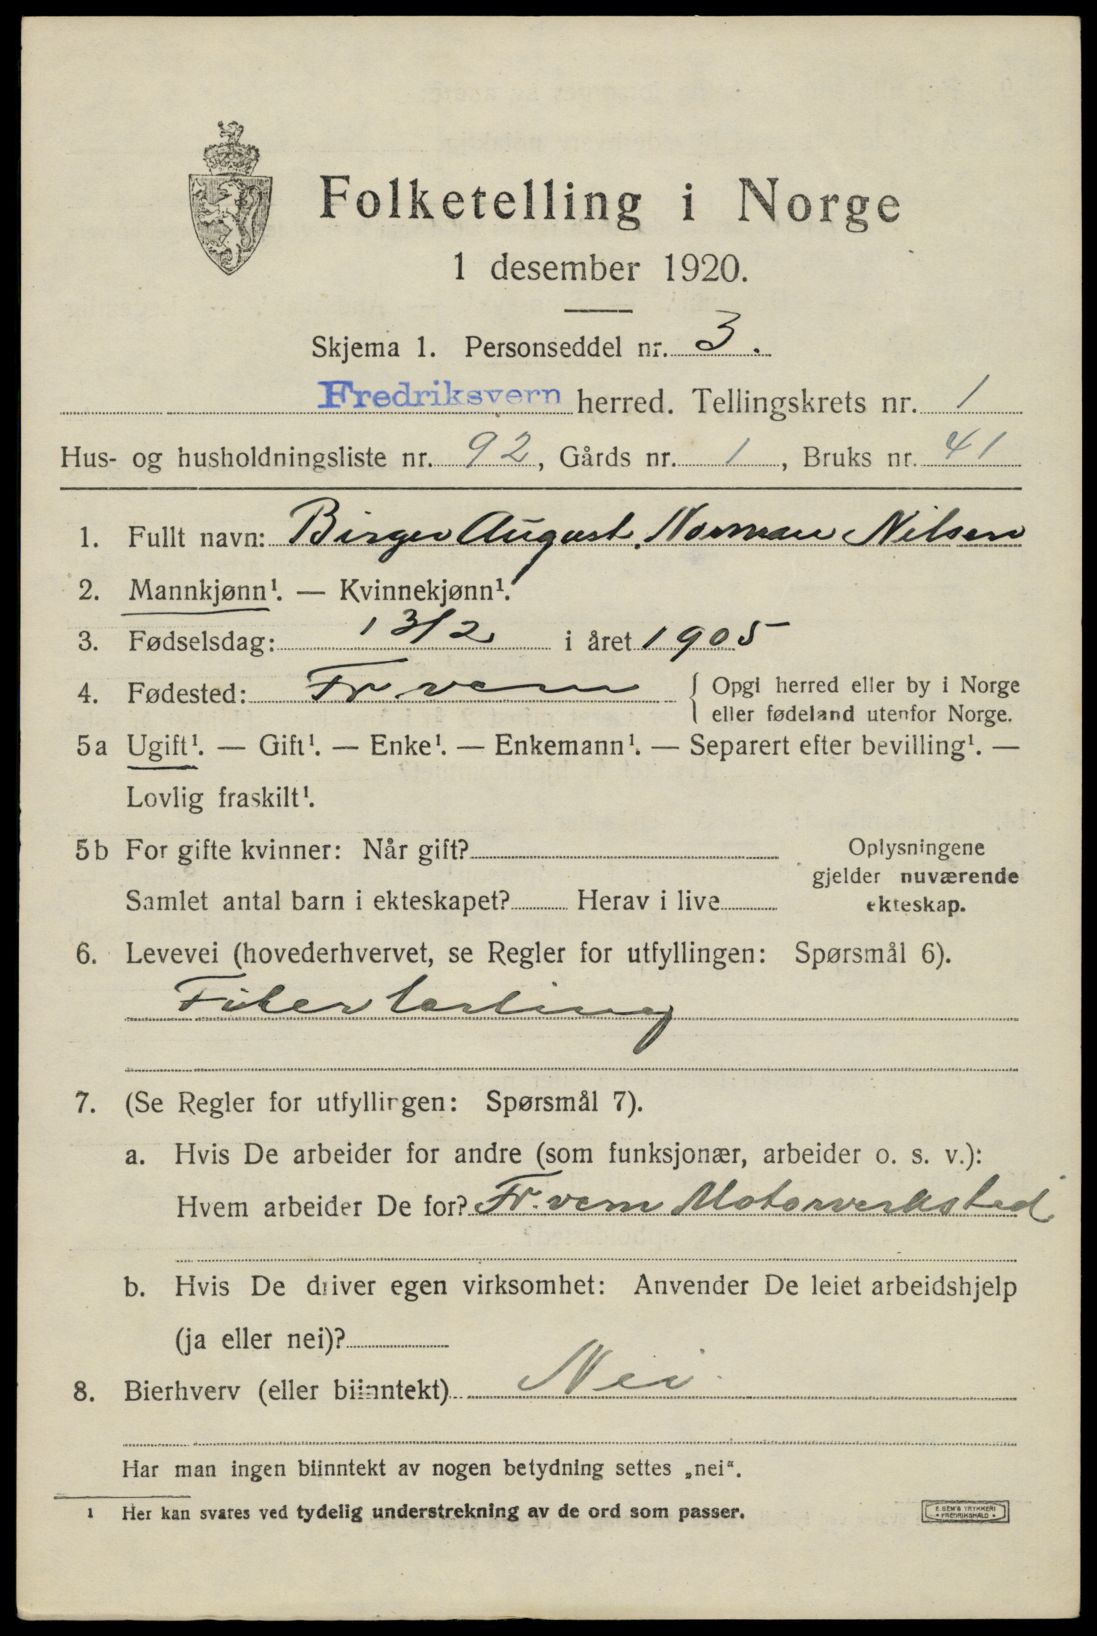 Folketelling i Norge
1 desember 1920.
Skjema 1. Personseddel nr. 3.
Fredriksvern herred. Tellingskrets nr. 1
Hus- og husholdningsliste nr. 92, Gårds nr. 1, Bruks nr. 41
1. Fullt navn: Birger August Norman Nilsen
2. Mannkjønn¹. — Kvinnekjønn¹.
3. Fødselsdag: 13/2 i året 1905
4. Fødested: Fr vern { Opgi herred eller by i Norge
eller fødeland utenfor Norge.
5a Ugift¹. — Gift¹. — Enke¹. — Enkemann¹. — Separert efter bevilling¹. —
Lovlig fraskilt¹.
5b For gifte kvinner: Når gift?
Samlet antal barn i ekteskapet? Herav i live
Oplysningene
gjelder nuværende
ekteskap.
6. Levevei (hovederhvervet, se Regler for utfyllingen: Spørsmål 6).
7. (Se Regler for utfyllingen: Spørsmål 7).
a. Hvis De arbeider for andre (som funksjonær, arbeider o. s. v.):
Hvem arbeider De for? Fr. vern Motorverksted
b. Hvis De driver egen virksomhet: Anvender De leiet arbeidshjelp
(ja eller nei)?
8. Bierhverv (eller biinntekt) Nei
Har man ingen biinntekt av nogen betydning settes „nei“.
¹ Her kan svares ved tydelig understrekning av de ord som passer.
E. SEM'S TRYKKERI
• FREDRIKSHALD •